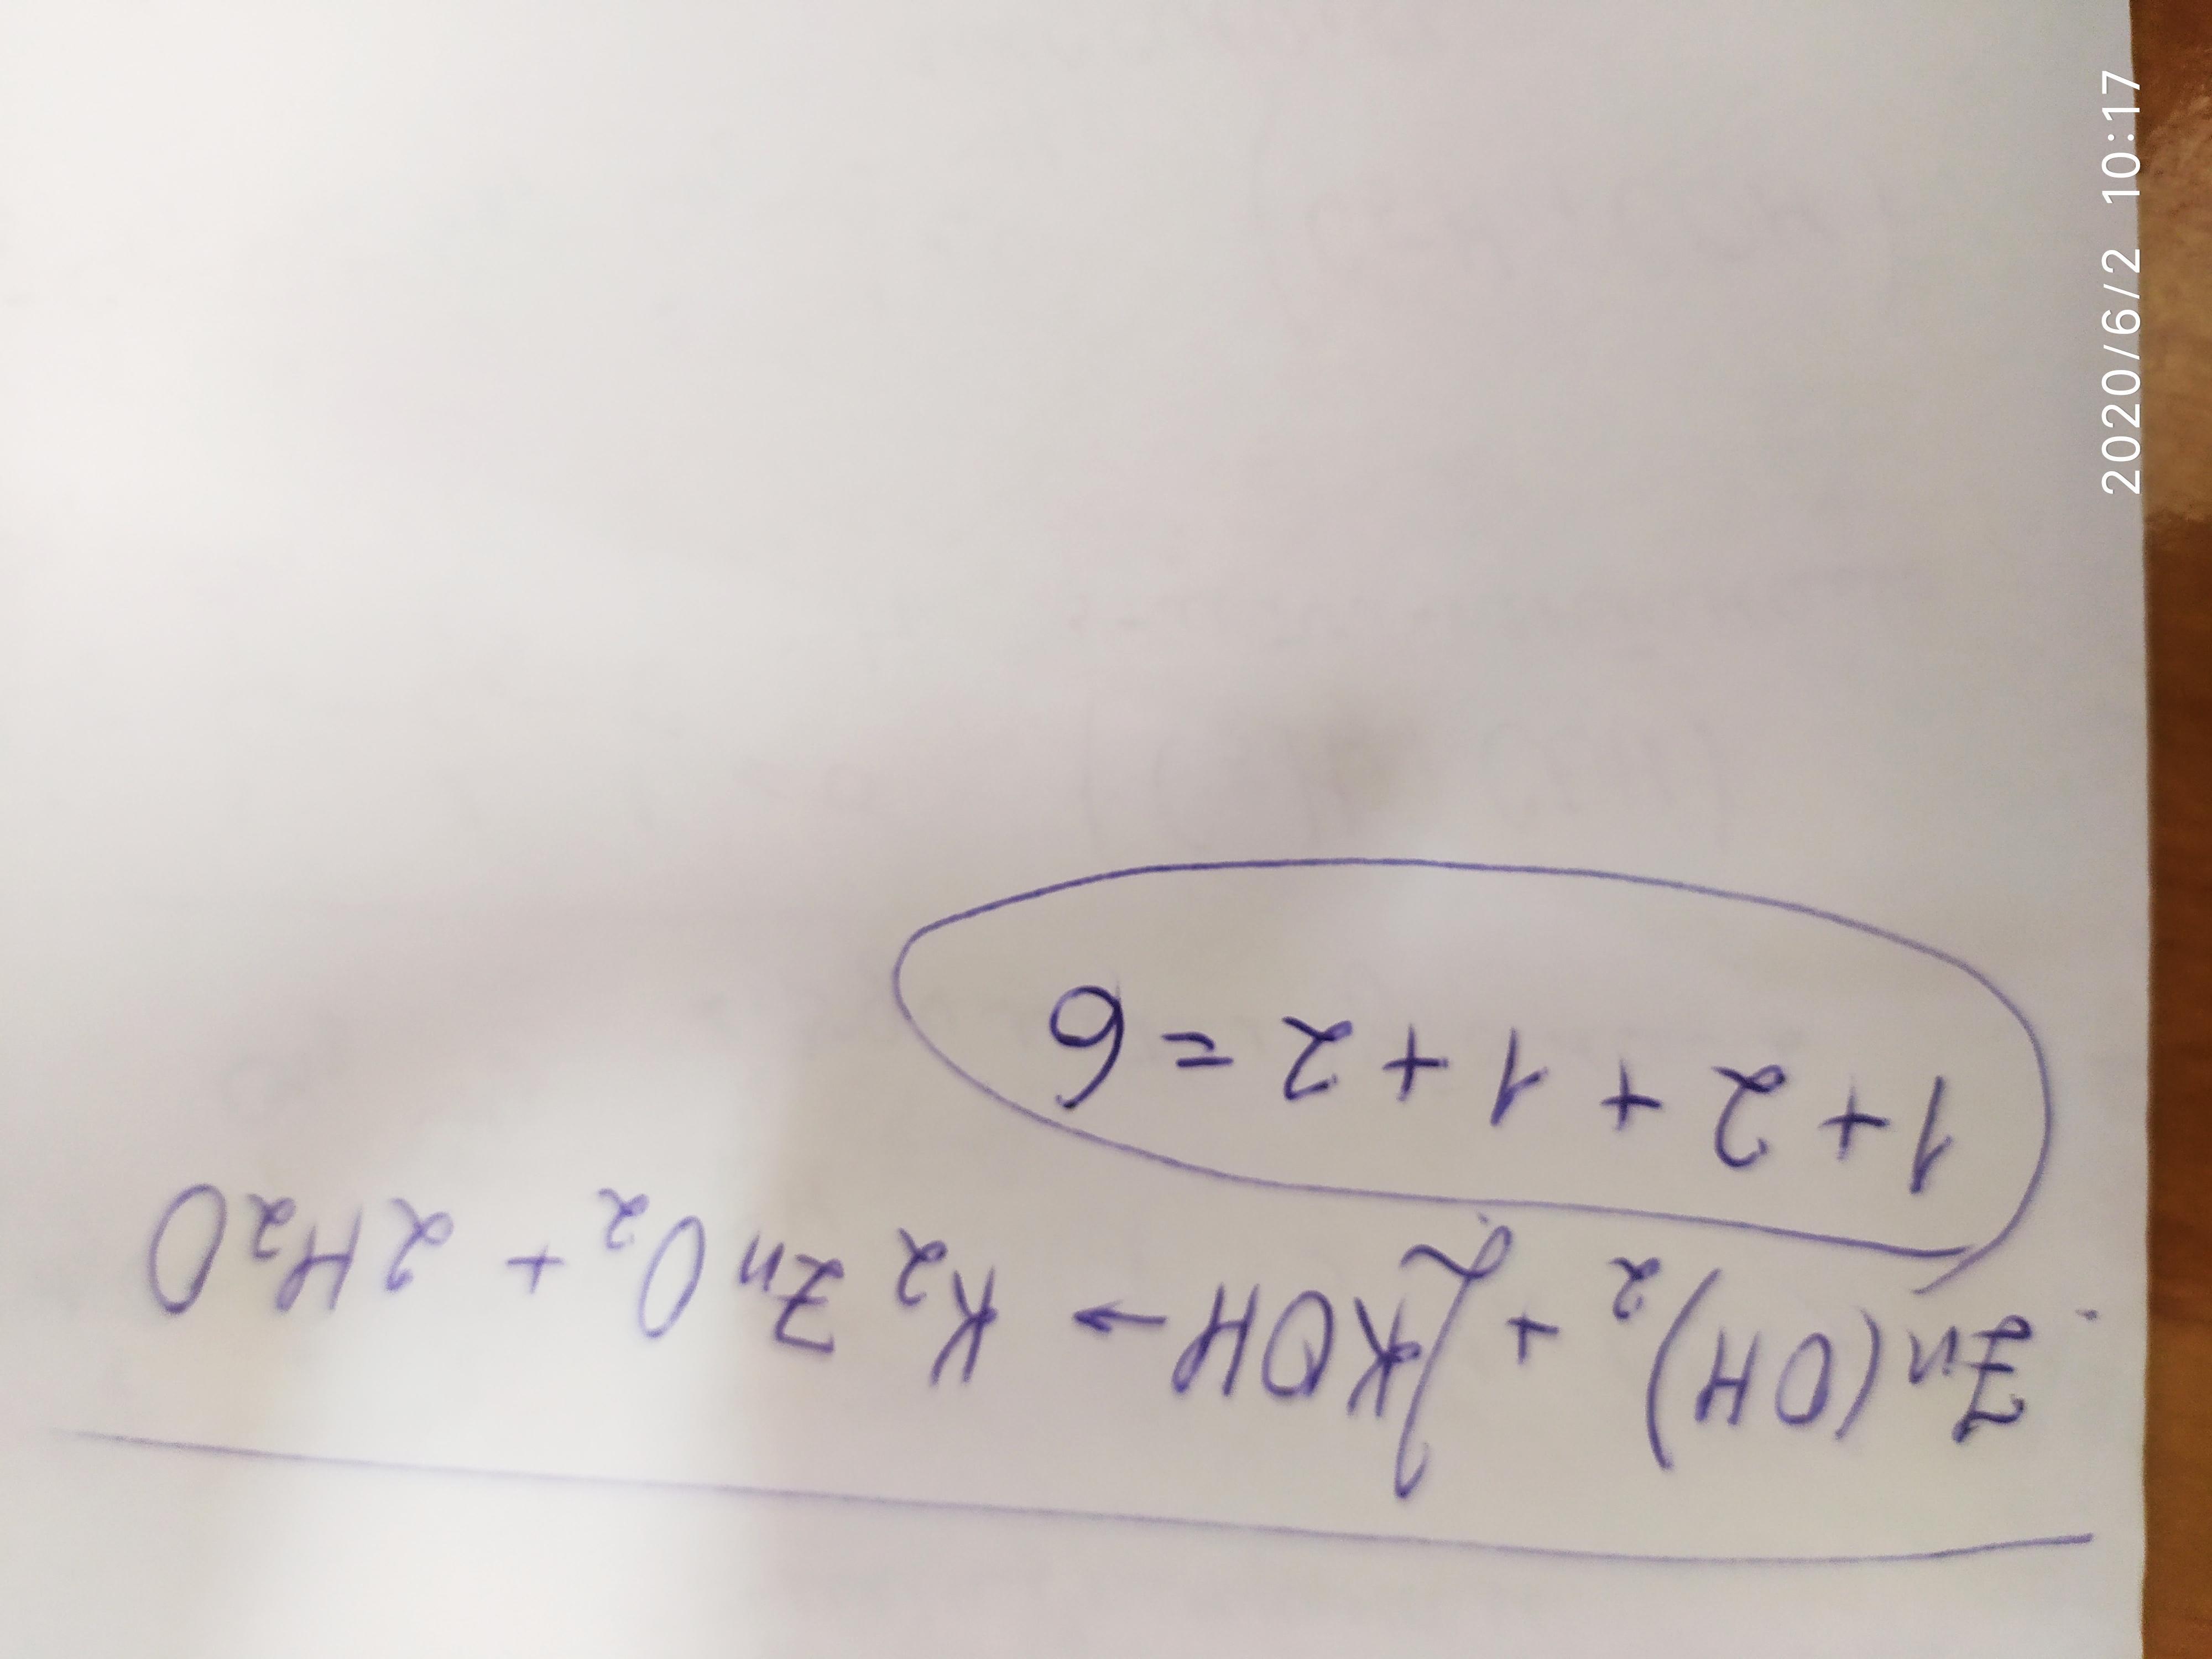 Zn(OH)₂ + 2KOH → K₂ZnO₂ + 2H₂O
1+2+1+2=6
2020/6/2 10:17